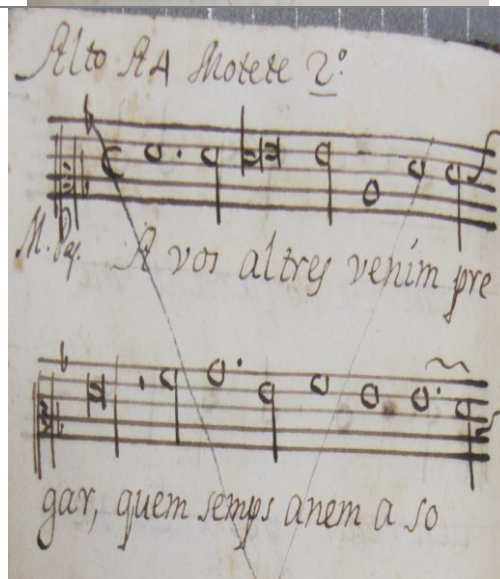 Alto A 4 Motete 2º
A vos altres venim pre
gar, quem semps anem a so